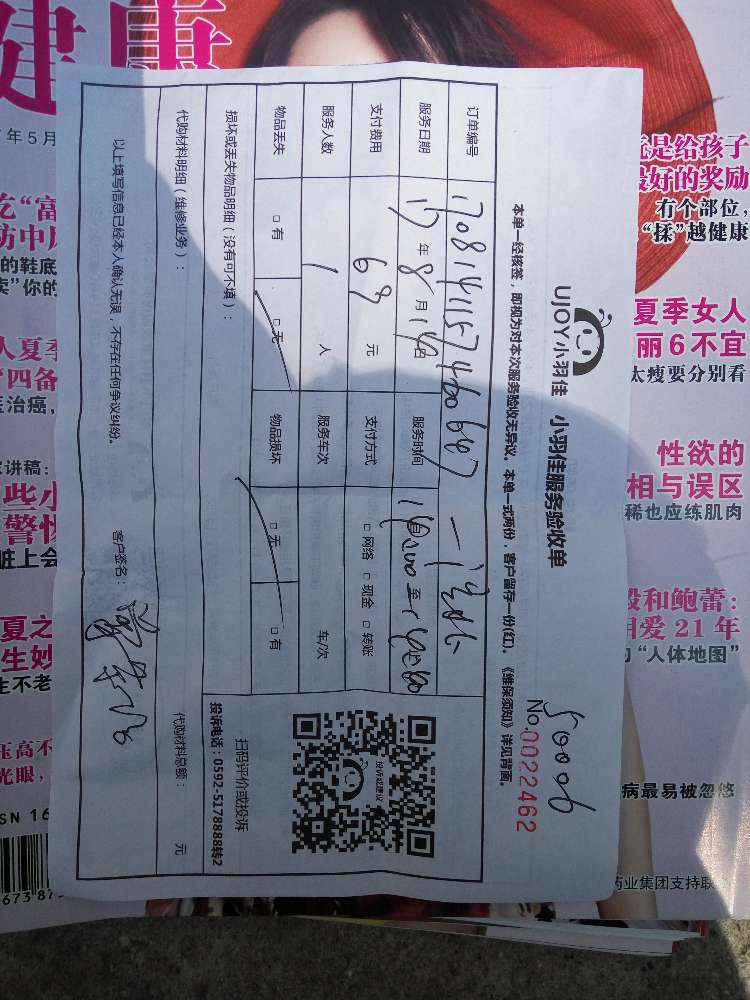 UJOY小羽佳 小羽佳服务验收单
No.0022462
本单一经核签，即视为对本次服务验收无异议。本单一式两份，客户留存一份(红)。《维保须知》详见背面。
订单编号
服务日期 17 年 8 月 14 日 服务时间 至
支付费用 69 元 支付方式 □ 网络 □ 现金 □ 转账
服务人数 1 人 服务车次 车/次
物品丢失 □ 有 □ 无 物品损坏 □ 无 □ 有
损坏或丢失物品明细（没有可不填）：
代购材料明细（维修业务）：
代购材料总额： 元
以上填写信息已经本人确认无误，不存在任何争议纠纷。 客户签名：
投诉或建议
扫码评价或投诉
投诉电话：0592-5178888转2
健康
年5月
的鞋底
四备
治癌，
讲稿：
些小
警惕
脏上会
夏之
生妙
生不老
压高不
光眼，
SN 16
是给孩子
最好的奖励
有个部位，
“揉”越健康
夏季女人
丽6不宜
太瘦要分别看
性欲的
相与误区
稀也应练肌肉
和鲍蕾：
相爱 21 年
“人体地图”
病最易被忽悠
药业集团支持